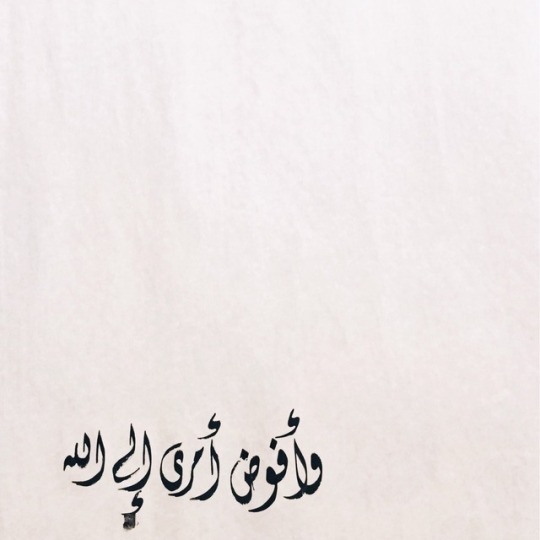 وأفوض أمرى إلى الله